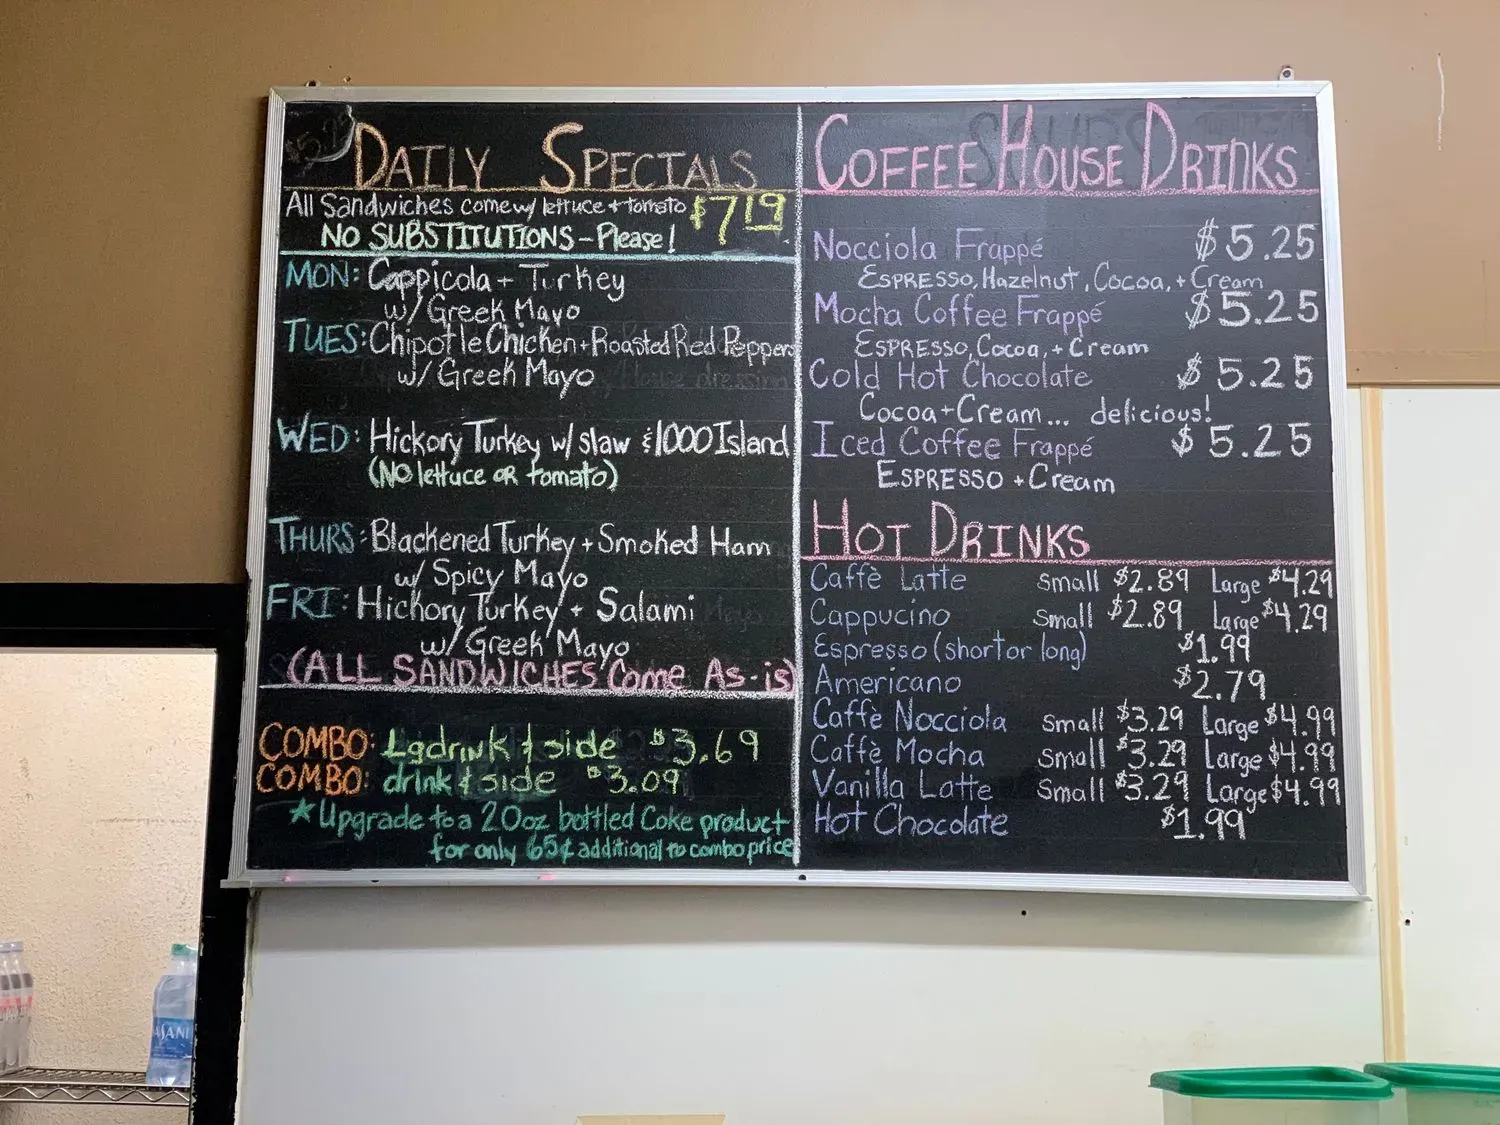 DAILY SPECIALS
All Sandwiches come w/ lettuce + tomato $7.19
NO SUBSTITUTIONS - Please!
MON: Cappicola + Turkey
w/ Greek Mayo
TUES: Chipotle Chicken + Roasted Red Peppers
w/ Greek Mayo
WED: Hickory Turkey w/ slaw & 1000 Island
(NO lettuce OR tomato)
THURS: Blackened Turkey + Smoked Ham
w/ Spicy Mayo
FRI: Hickory Turkey + Salami
w/ Greek Mayo
(ALL SANDWICHES Come As-is)
COMBO: Lg drink & side $3.69
COMBO: drink & side $3.09
★ Upgrade to a 20oz bottled Coke product
for only 65¢ additional to combo price
COFFEE HOUSE DRINKS
Nocciola Frappé $5.25
ESPRESSO, Hazelnut, Cocoa, + Cream
Mocha Coffee Frappé $5.25
ESPRESSO, Cocoa, + Cream
Cold Hot Chocolate $5.25
Cocoa + Cream... delicious!
Iced Coffee Frappé $5.25
ESPRESSO + Cream
HOT DRINKS
Caffè Latte Small $2.89 Large $4.29
Cappucino Small $2.89 Large $4.29
Espresso (short or long) $1.99
Americano $2.79
Caffè Nocciola Small $3.29 Large $4.99
Caffè Mocha Small $3.29 Large $4.99
Vanilla Latte Small $3.29 Large $4.99
Hot Chocolate $1.99